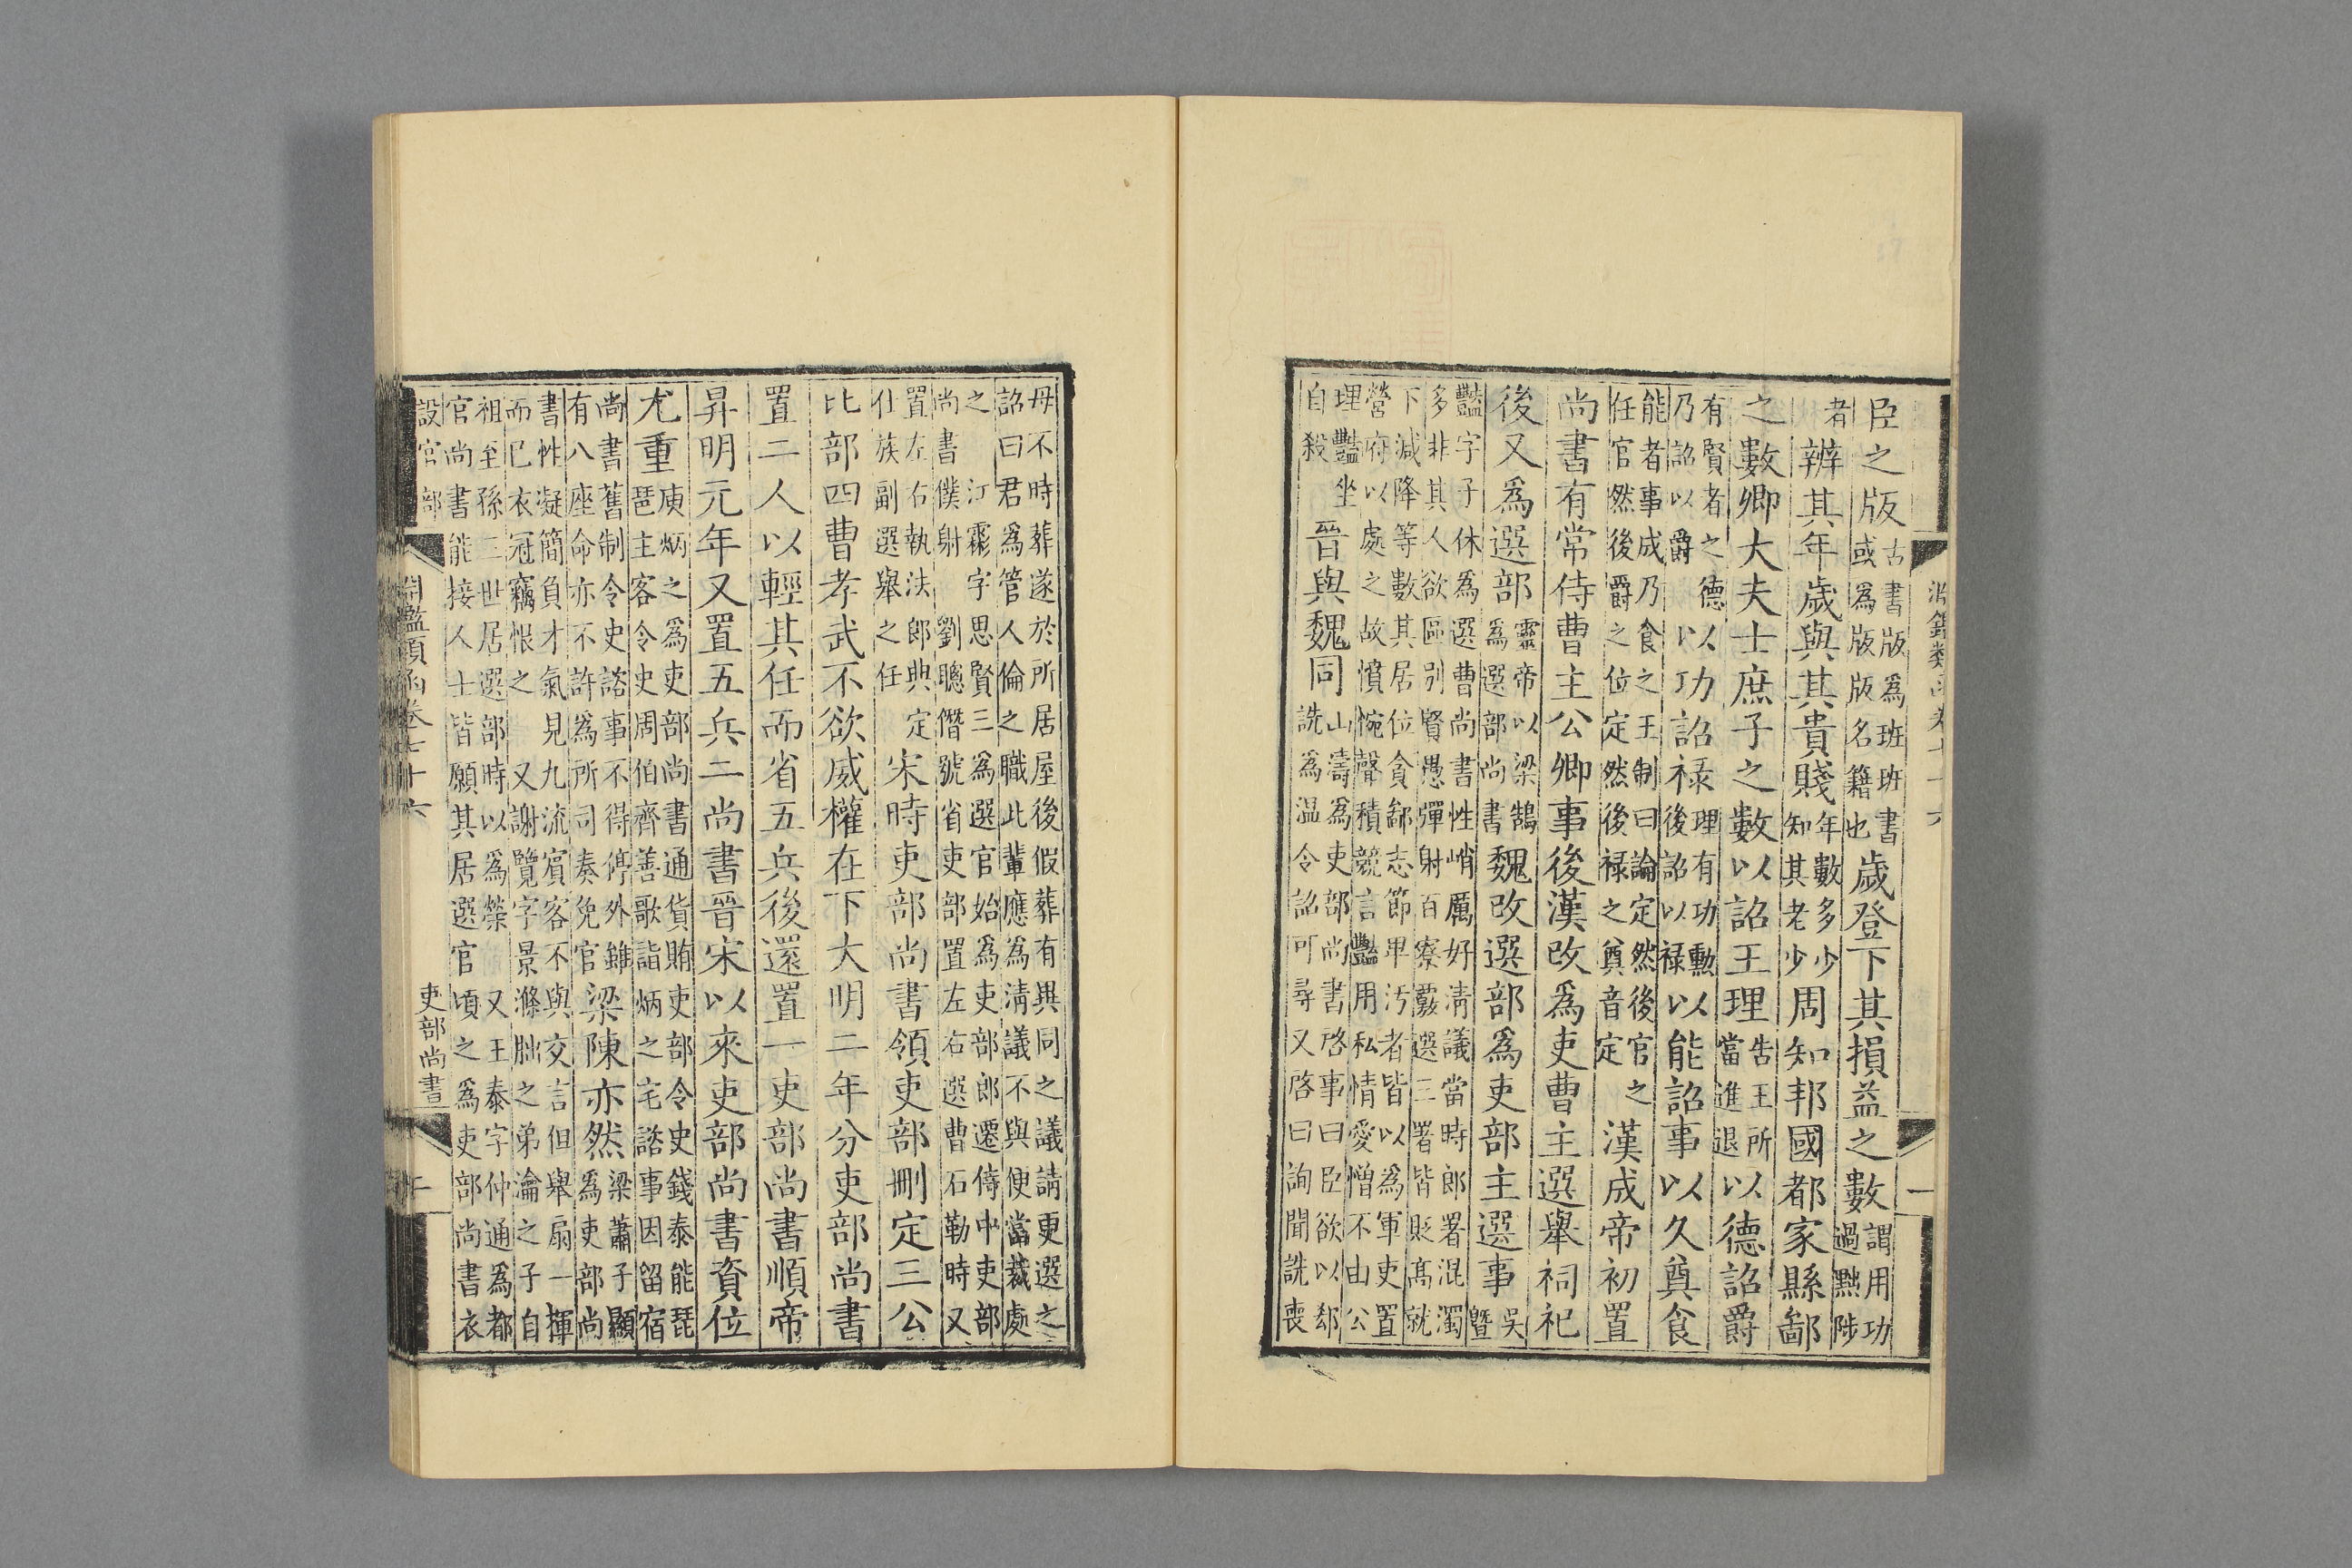 臣之版古書版爲班班書或爲版版名籍也歲登下其損益之數謂用功過黜陟
者辨其年歲與其貴賤年數多少知其老少周知邦國都家縣鄙
之數卿大夫士庶子之數以詔王理告王所當進退以德詔爵
有賢者之德乃詔以爵以功詔祿理有功勳後詔以祿以能詔事以久奠食
能者事成乃食之王制曰論定然後官之任官然後爵之位定然後祿之奠音定漢成帝初置
尚書有常侍曹主公卿事後漢改爲吏曹主選舉祠祀
後又爲選部靈帝以梁鵠爲選部尚書魏改選部爲吏部主選事吳曁
豔字子休爲選曹尚書性峭厲好清議當時郎署混濁多非其人欲區別賢愚彈射百寮覈選三署皆貶高就
下減降等數其居位貪鄙志節卑汚者皆以爲軍吏置營府以處之故憤惋聲積競言豔用私情愛憎不由公
理豔坐自殺晉與魏同山濤爲吏部尚書啓事曰臣欲以郄詵爲温令詔可尋又啓曰詢聞詵喪
母不時葬遂於所居屋後假葬有異同之議請更選之詔曰君爲管人倫之職此輩應爲清議不與便當裁處
之 江霦字思賢三爲選官始爲吏部郎遷侍中吏部尚書僕射 劉聰僭號省吏部置左右選曹石勒時又
置左右執法郎典定仕族副選舉之任宋時吏部尚書領吏部刪定三公
比部四曹孝武不欲威權在下大明二年分吏部尚書
置二人以輕其任而省五兵後還置一吏部尚書順帝
昇明元年又置五兵二尚書晉宋以來吏部尚書資位
尤重庾炳之爲吏部尚書通貨賄吏部令史錢泰能琵琶主客令史周伯齊善歌詣炳之宅諮事因留宿
尚書舊制令史諮事不得停外雖有八座命亦不許爲所司奏免官梁陳亦然梁蕭子顯爲吏部尚
書性凝簡負才氣見九流賓客不與交言但舉扇一揮而已衣冠竊恨之 又謝覽字景滌朏之弟瀹之子自
祖至孫三世居選部時以爲榮 又王泰字仲通爲都官尚書能接人士皆願其居選官頃之爲吏部尚書衣
設官部
吏部尚書
淵鑑類函卷七十六